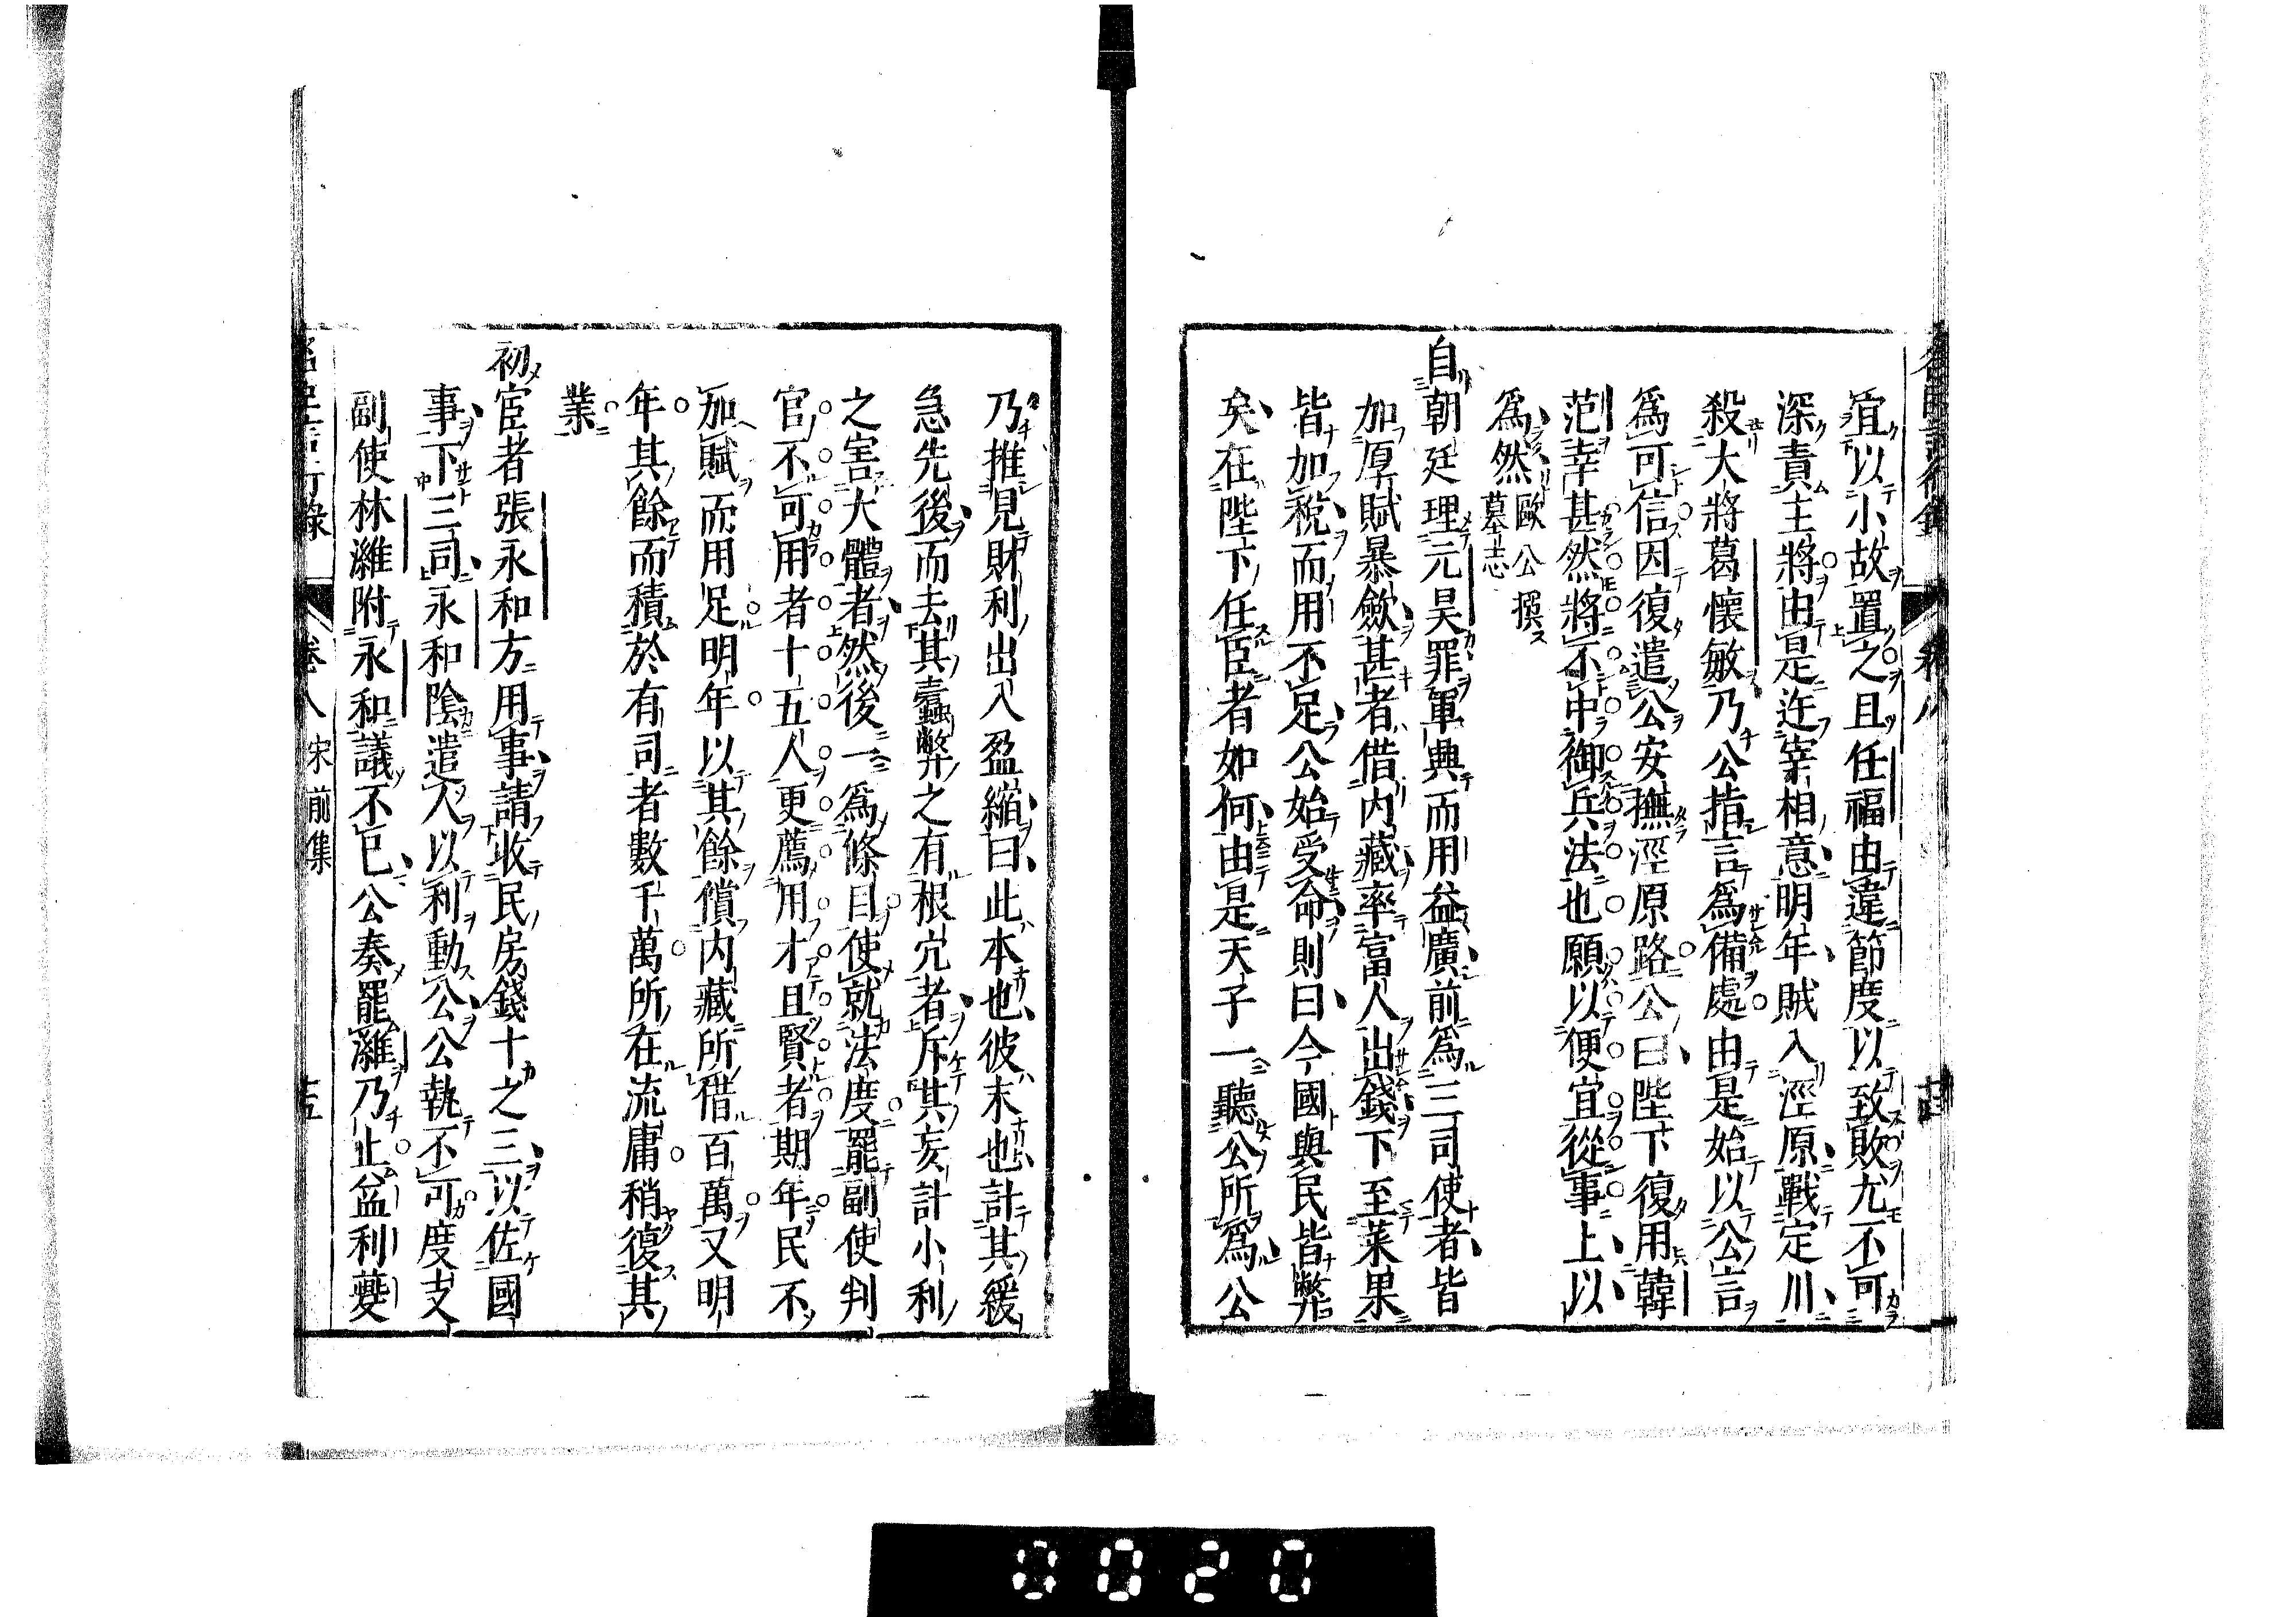 宜以小故置之且任福由違節度以致敗尤不可
深責主將由是迕宰相意明年賊入涇原戰定川
殺大將葛懷敏乃公指言爲備處由是始以公言
爲可信因復遣公安撫涇原路公曰陛下復用韓
范幸甚然將不中御兵法也願以便宜從事上以
爲然歐公撰墓志
自朝廷理元昊罪軍興而用益廣前爲三司使者皆
加厚賦暴斂甚者借內藏率富人出錢下至菜果
皆加稅而用不足公始受命則曰今國與民皆弊
矣在陛下任臣者如何由是天子一聽公所爲公
乃推見財利出入盈縮曰此本也彼末也計其緩
急先後而去其蠹弊之有根穴者斥其妄計小利
之害大體者然後一爲條目使就法度罷副使判
官不可用者十五人更薦用才且賢者期年民不
加賦而用足明年以其餘償內藏所借百萬又明
年其餘而積於有司者數千萬所在流庸稍復其
業
初宦者張永和方用事請收民房錢十之三以佐國
事下三司永和陰遣人以利動公公執不可度支
副使林濰附永和議不已公奏罷濰乃止益利夔
卷八 宋前集
0020